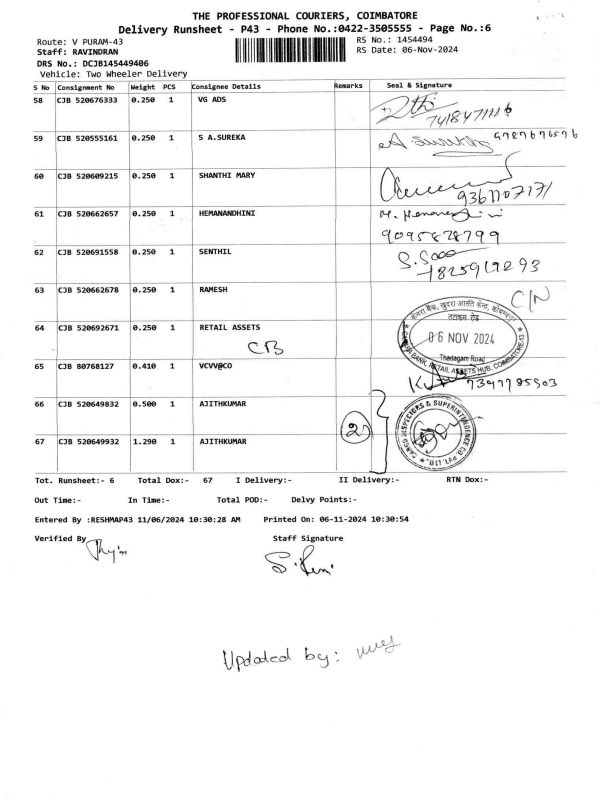 THE PROFESSIONAL COURIERS, COIMBATORE
Delivery Runsheet - P43 - Phone No.:0422-3505555 - Page No.:6
Route: V PURAM-43
RS No.: 1454494
Staff: RAVINDRAN
RS Date: 06-Nov-2024
DRS No.: DCJB145449406
Vehicle: Two Wheeler Delivery
S No Consignment No Weight PCS Consignee Details Remarks Seal & Signature
58 CJB 520676333 0.250 1 VG ADS
7418471116
59 CJB 520555161 0.250 1 5 A.SUREKA
A Sureka 9787676576
60 CJB 520609215 0.250 1 SHANTHI MARY
9361107171
61 CJB 520662657 0.250 1 HEMANANDHINI
9095828799
62 CJB 520691558 0.250 1 SENTHIL
63 CJB 520662678 0.250 1 RAMESH
C/N
64 CJB 520692671 0.250 1 RETAIL ASSETS
CB
06 NOV 2024
Thadagam Road
CANARA BANK, RETAIL ASSETS HUB, COIMBATORE-13
65 CJB 80768127 0.410 1 VCVV@CO
66 CJB 520649832 0.500 1 AJITHKUMAR
2
CARGO INSPECTORS & SUPERINTENDENCE CO. PVT. LTD.
67 CJB 520649932 1.290 1 AJITHKUMAR
Tot. Runsheet:- 6 Total Dox:- 67 I Delivery:- II Delivery:- RTN Dox:-
Out Time:- In Time:- Total POD:- Delvy Points:-
Entered By :RESHMAP43 11/06/2024 10:30:28 AM Printed On: 06-11-2024 10:30:54
Verified By Staff Signature
Updated by: